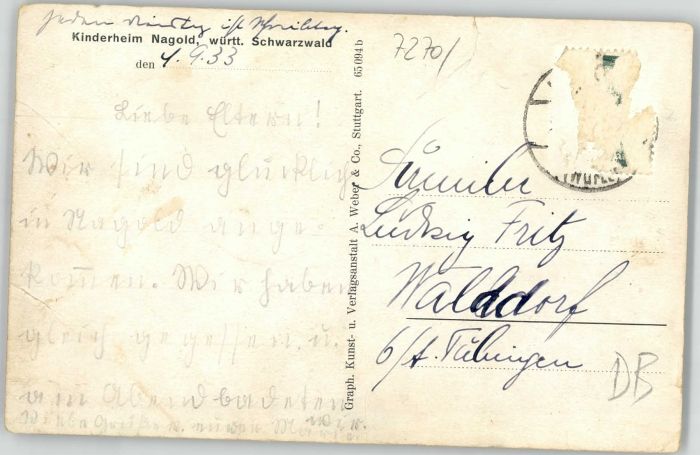 jeden Dienstag ist Schreibtag.
Kinderheim Nagold, württ. Schwarzwald
den 4.9.33
Liebe Eltern!
Wir sind glücklich
in Nagold ange-
kommen. Wir haben
gleich gegessen. u.
am Abend badeten
wir.
Liebe Grüße v. eurer
Graph. Kunst- u. Verlagsanstalt A. Weber & Co., Stuttgart. 65094b
7270/
Familie
Ludwig Fritz
Walddorf
b/A. Tübingen
DB